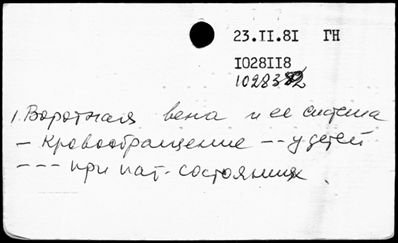 23.II.81 ГН
I028II8
1. Воротная вена и ее система
– кровообращение – – у детей
– – – при пат. состояниях.